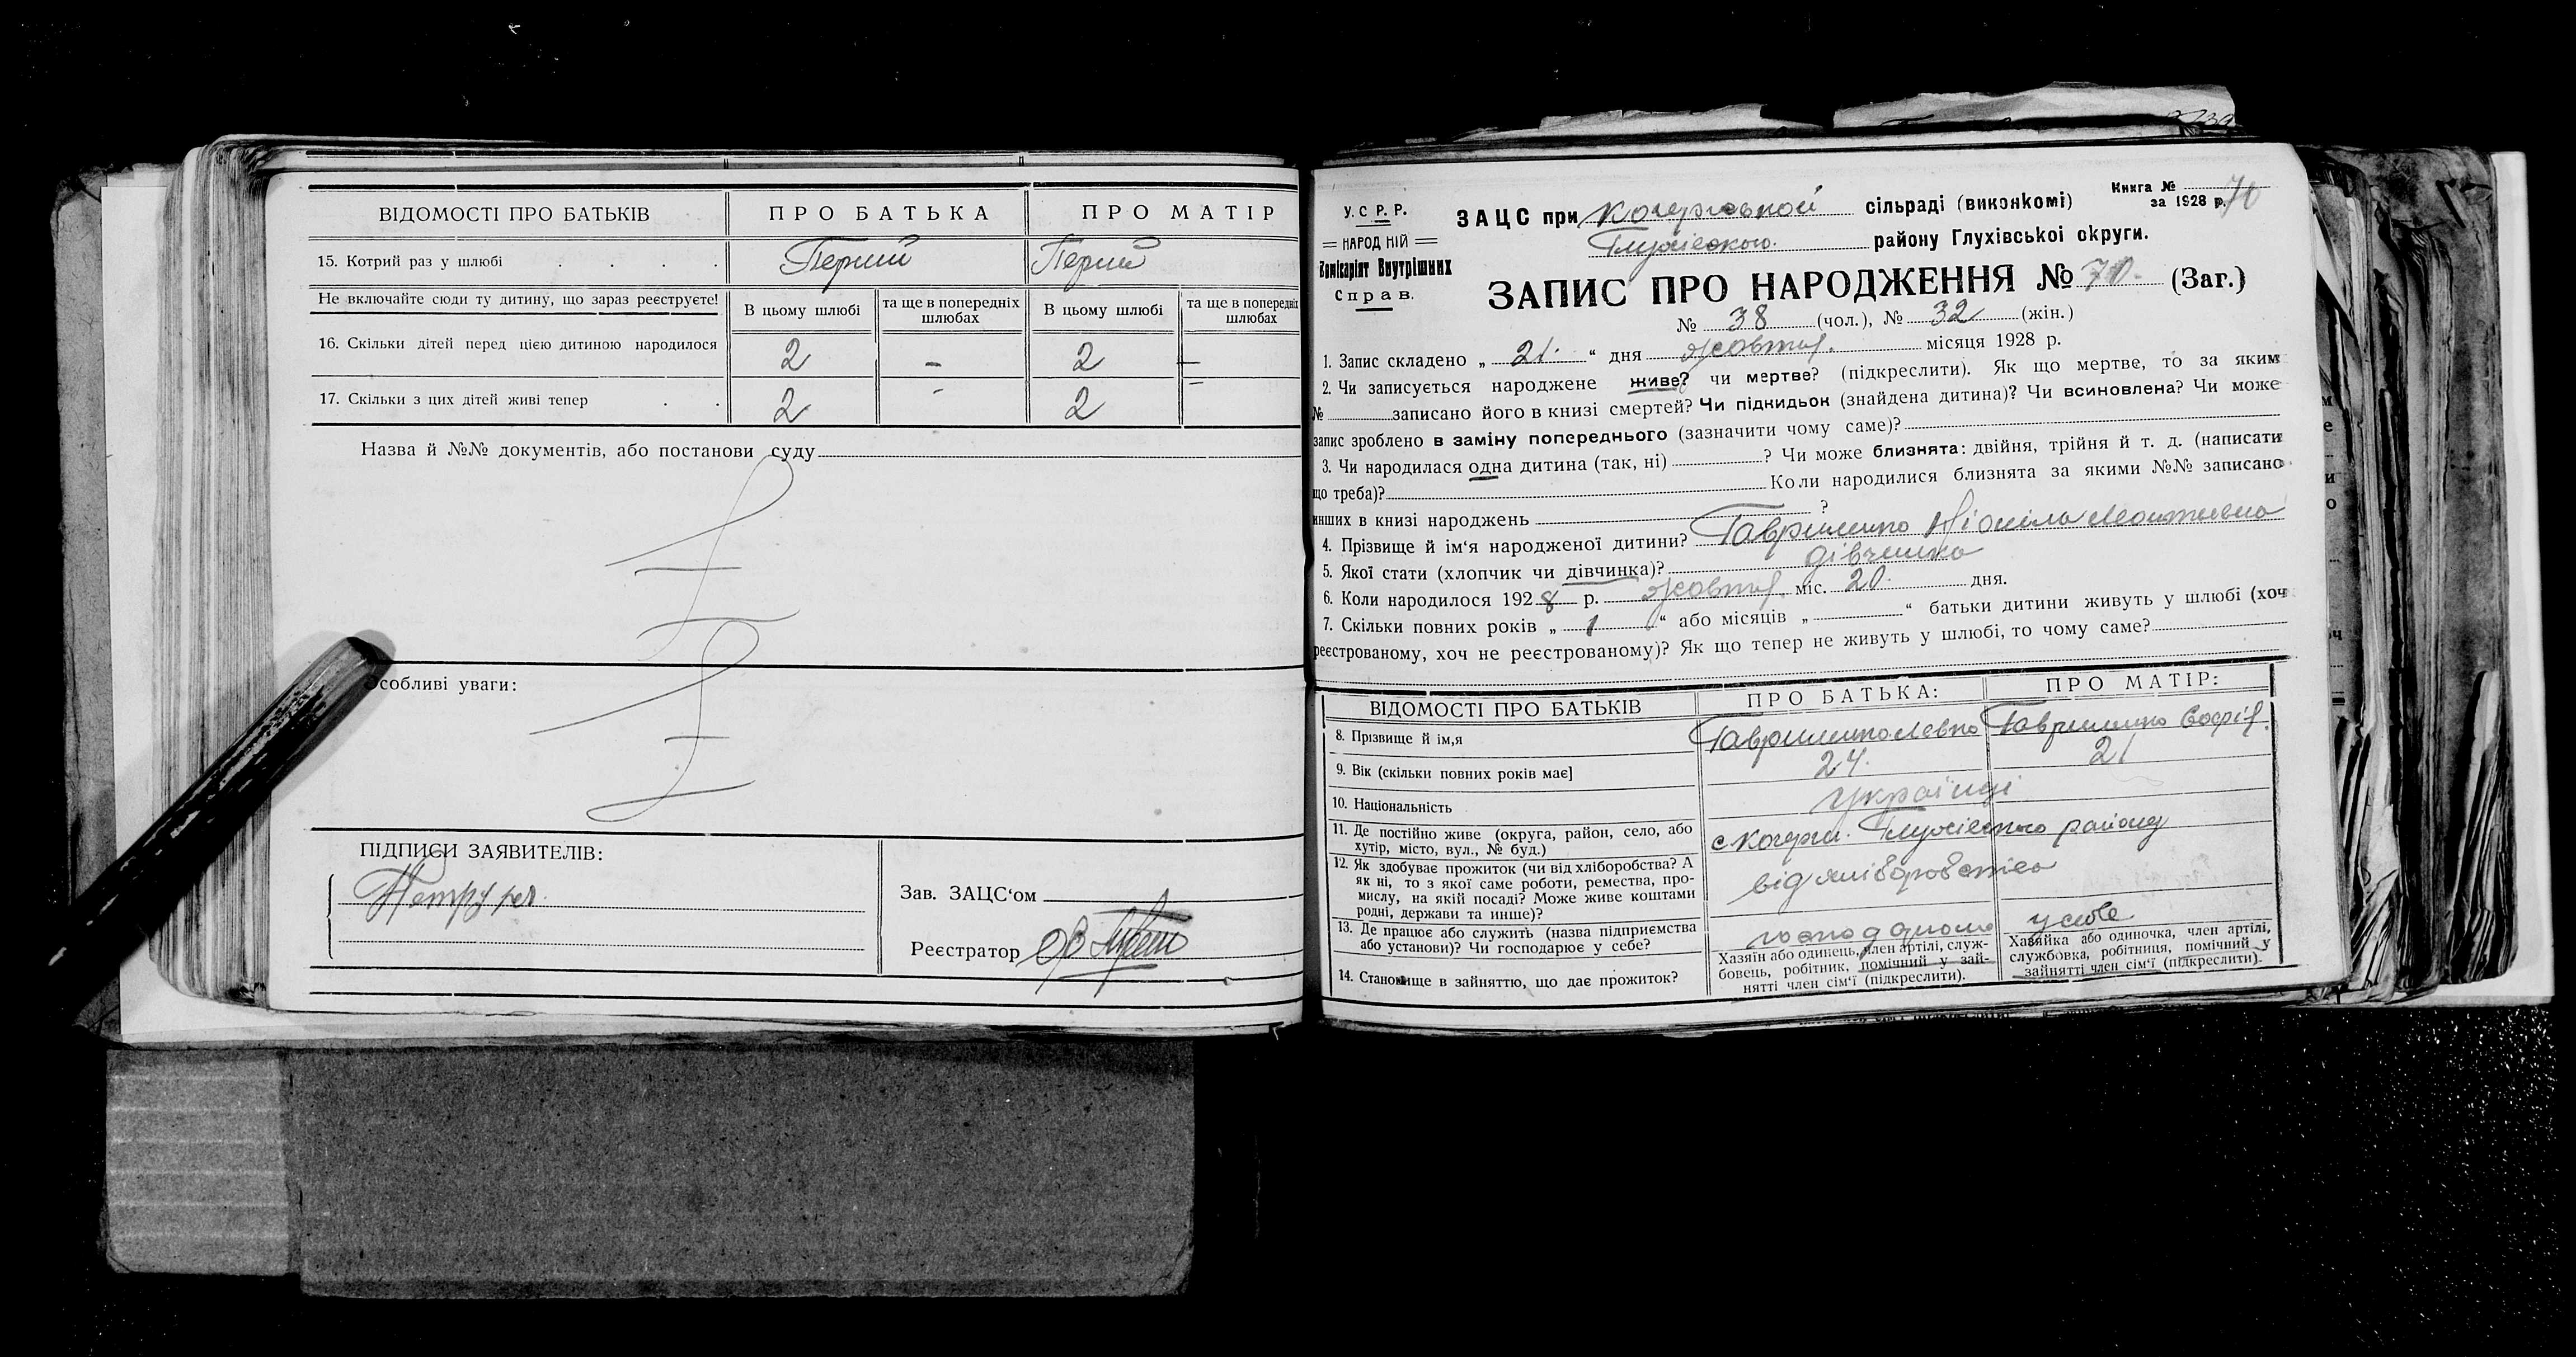 ВІДОМОСТІ ПРО БАТЬКІВ ПРО БАТЬКА ПРО МАТІР
15. Котрий раз у шлюбі Перший Перший
Не включайте сюди ту дитину, що зараз реєструєте! В цьому шлюбі та ще в попередніх шлюбах В цьому шлюбі та ще в попередніх шлюбах
16. Скільки дітей перед цією дитиною народилося 2 - 2 -
17. Скільки з цих дітей живі тепер 2 - 2 -
Назва й №№ документів, або постанови суду
Особливі уваги:
ПІДПИСИ ЗАЯВИТЕЛІВ:
Зав. ЗАЦС'ом
Реєстратор
У. С. Р. Р.
НАРОДНІЙ
Комісаріят Внутрішних
Справ.
Книга №
за 1928 р. 70
ЗАЦС при сільраді (виконкомі)
Глухівського району Глухівської округи.
ЗАПИС ПРО НАРОДЖЕННЯ № 70 (Заг.)
№ 38 (чол.), № 32 (жін.)
1. Запис складено „ 21 “ дня жовтня місяця 1928 р.
2. Чи записується народжене живе? чи мертве? (підкреслити). Як що мертве, то за яким
№ записано його в книзі смертей? Чи підкидьок (знайдена дитина)? Чи всиновлена? Чи може
запис зроблено в заміну попереднього (зазначити чому саме)?
3. Чи народилася одна дитина (так, ні) ? Чи може близнята: двійня, трійня й т. д. (написати
що треба)? Коли народилися близнята за якими №№ записано
инших в книзі народжень ?
4. Прізвище й ім'я народженої дитини?
5. Якої стати (хлопчик чи дівчинка)? дівчинка
6. Коли народилося 1928 р. жовтня міс. 20 дня.
7. Скільки повних років „ 1 “ або місяців „ “ батьки дитини живуть у шлюбі (хоч
реєстрованому, хоч не реєстрованому)? Як що тепер не живуть у шлюбі, то чому саме?
ВІДОМОСТІ ПРО БАТЬКІВ ПРО БАТЬКА: ПРО МАТІР:
8. Прізвище й ім,я
9. Вік (скільки повних років має] 24. 21
10. Національність українці
11. Де постійно живе (округа, район, село, або
хутір, місто, вул., № буд.) с Кочерги Глухівського району
12. Як здобуває прожиток (чи від хліборобства? А
як ні, то з якої саме роботи, ремества, про-
мислу, на якій посаді? Може живе коштами
родні, держави та инше)? від хліборобства
13. Де працює або служить (назва підприємства
або установи)? Чи господарює у себе? у себе
14. Становище в зайняттю, що дає прожиток?
Хазяїн або одинець, член артілі, служ-
бовець, робітник, помічний у зай-
нятті член сім'ї (підкреслити).
Хазяйка або одиночка, член артілі,
службовка, робітниця, помічний у
зайнятті член сім'ї (підкреслити).